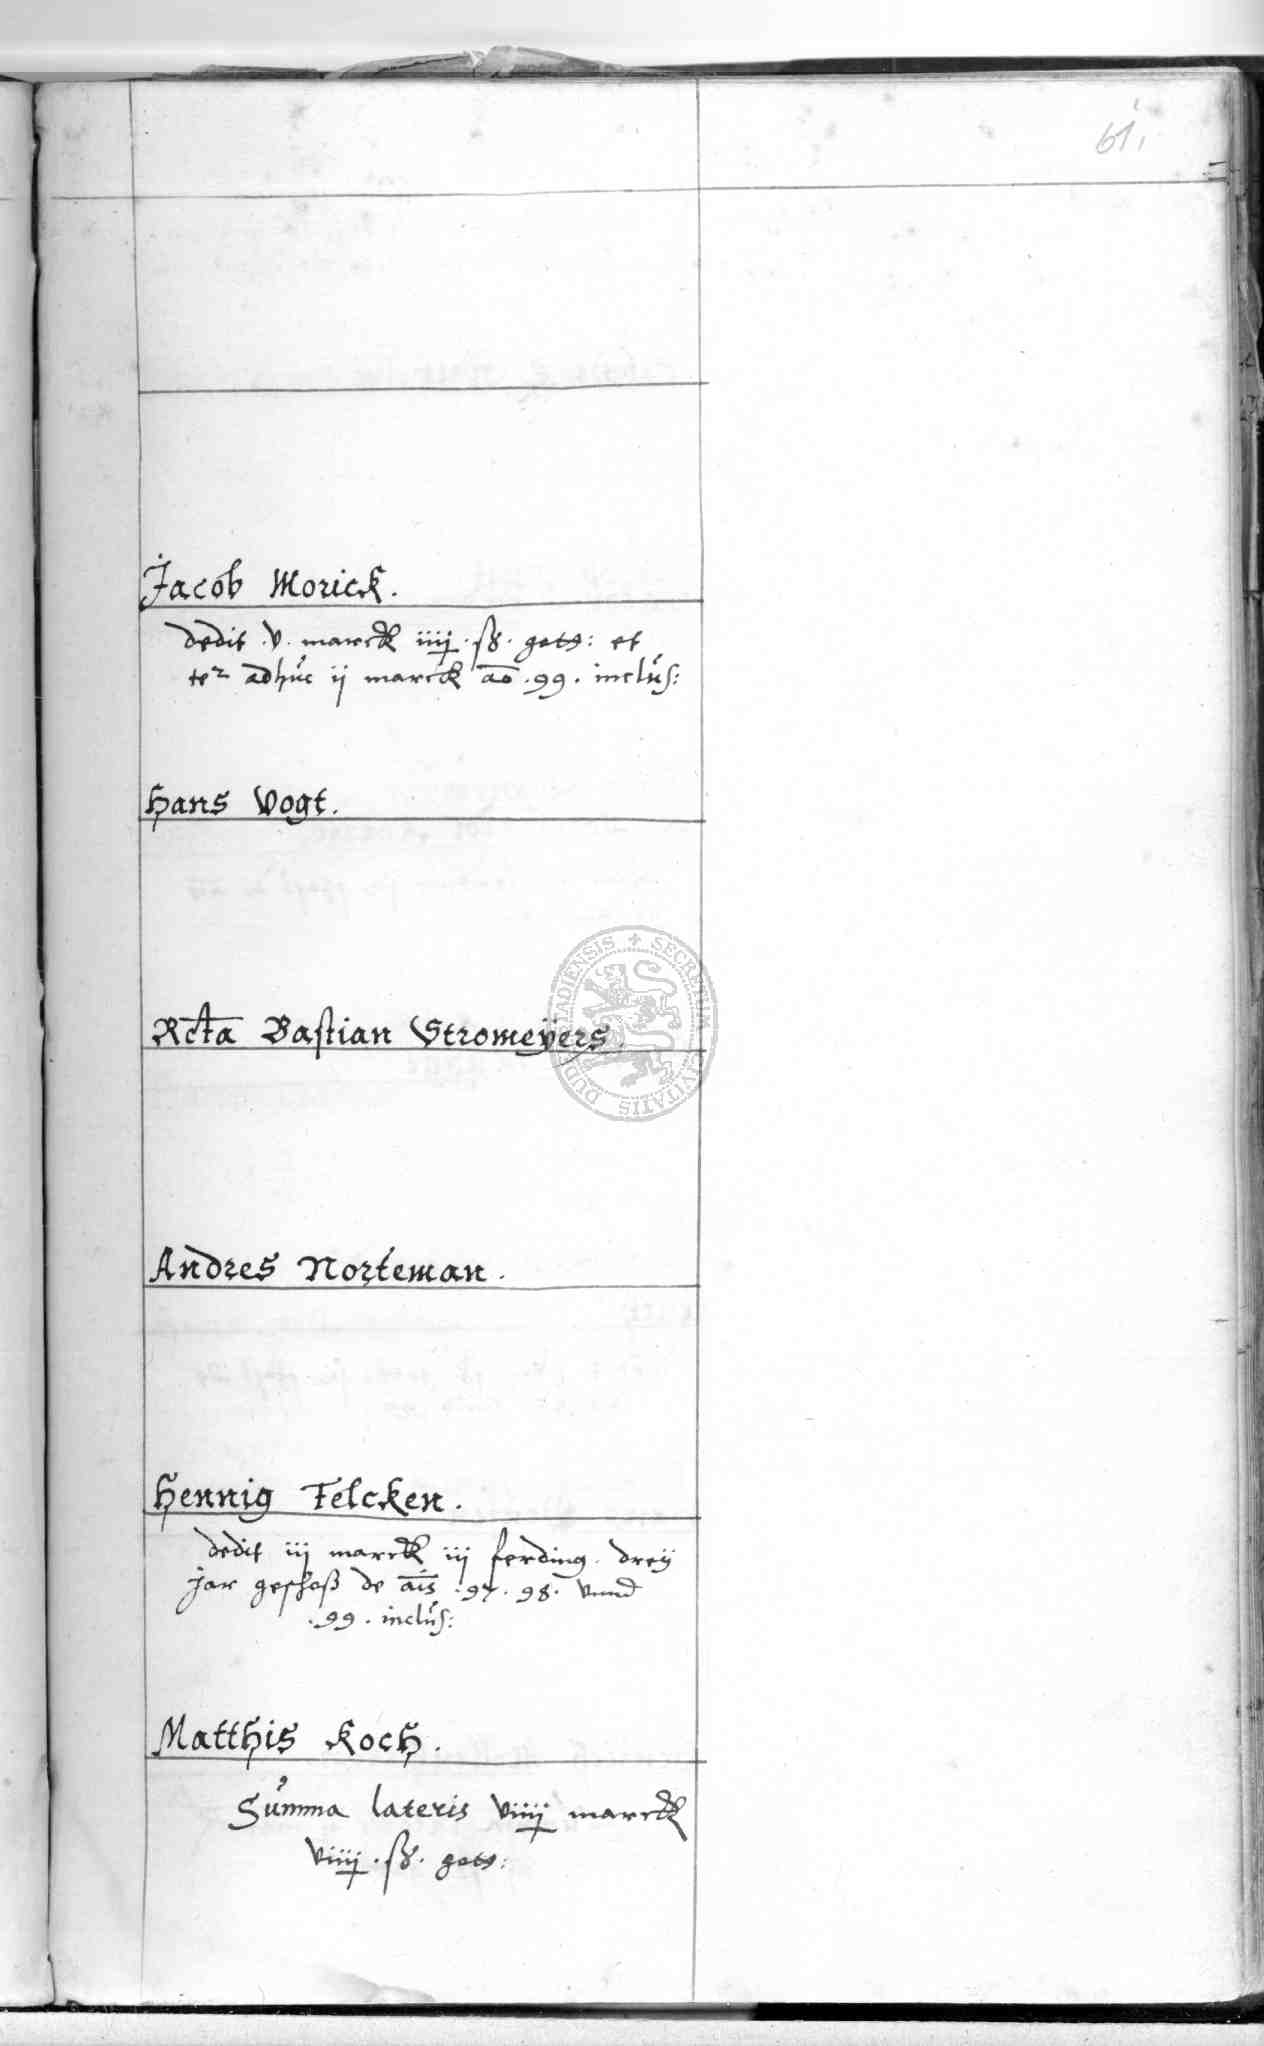 61.
Jacob Morick.
dedit .v. marck iiij .ß. gots: et
ter adhuc ij marck ao .99. inclus:
Hans Vogt.
Rcta Bastian Stromeÿers.
SECRETUM CIVITATIS DUDERSTADIENSIS
Andres Norteman.
Hennig Felcken.
dedit iij marck iij ferding. dreÿ
jar geschoß de ais .97. 98. vnnd
.99. inclus:
Matthis Koch.
Summa lateris viiij marck
viiij .ß. gots: